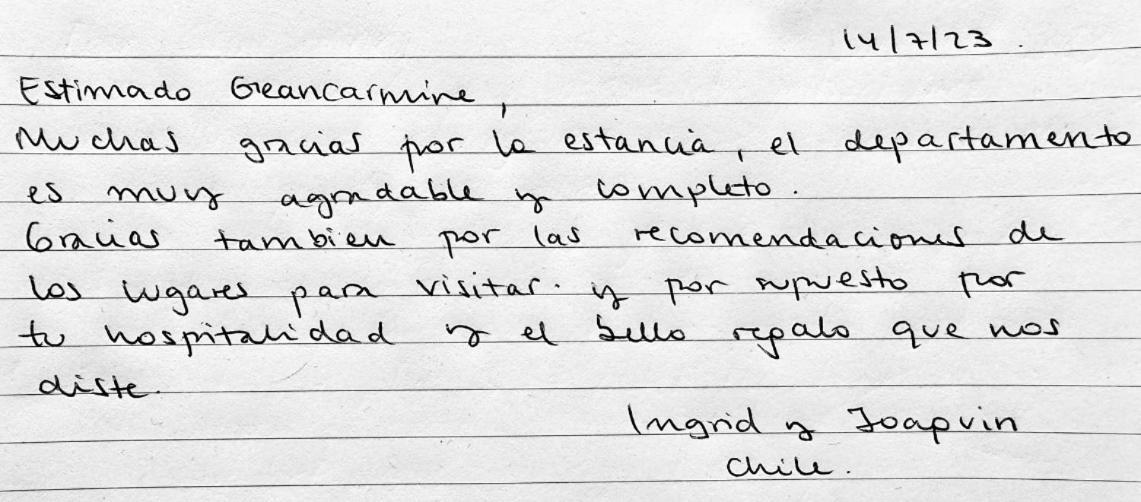 14/7/23.
Estimado Geancarmine,
Muchas gracias por la estancia, el departamento
es muy agradable y completo.
Gracias tambien por las recomendaciones de
los lugares para visitar. y por supuesto por
tu hospitalidad y el bello regalo que nos
diste.
Ingrid y Joaquin
Chile.